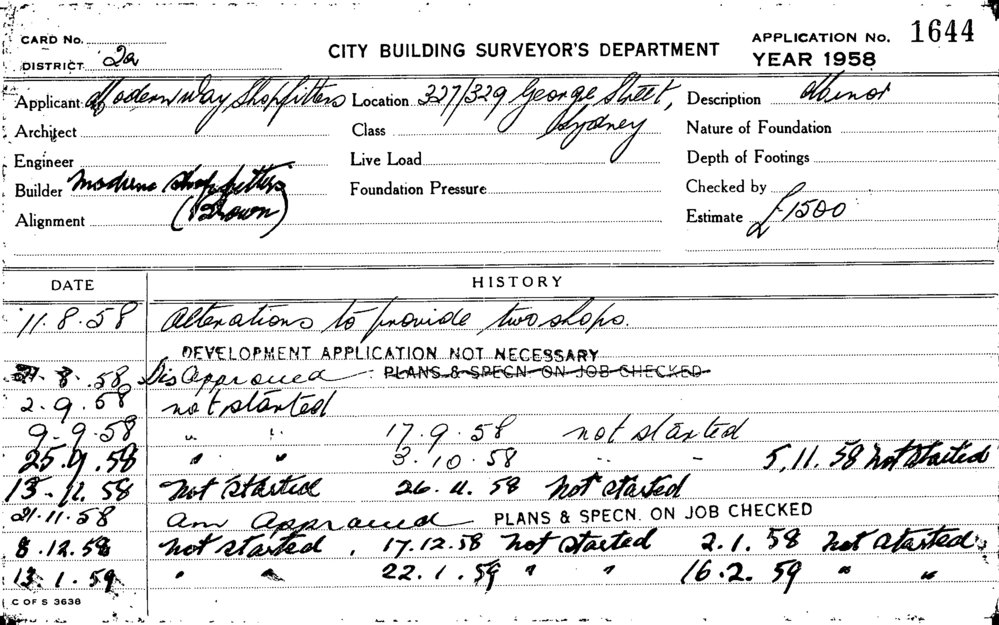 CARD No. APPLICATION No. 1644
DISTRICT 2a CITY BUILDING SURVEYOR'S DEPARTMENT YEAR 1958
Applicant Modern way Shopfitters Location 327/329 George Street, Sydney Description Minor
Architect Class Nature of Foundation
Engineer Live Load Depth of Footings
Builder Modern Shopfitters (Brown) Foundation Pressure Checked by
Alignment Estimate £1500
DATE HISTORY
11.8.58 Alterations to provide two shops.
DEVELOPMENT APPLICATION NOT NECESSARY
8.58 DisApproved PLANS & SPECN ON JOB CHECKED
2.9.58 not started
9.9.58 " " 17.9.58 not started
25.9.58 " " 3.10.58 " " 5.11.58 Not Started
13.11.58 Not Started 26.11.58 Not Started
21.11.58 Am Approved PLANS & SPECN. ON JOB CHECKED
8.12.58 Not started, 17.12.58 Not Started 2.1.58 Not Started
13.1.59 " " 22.1.59 " " 16.2.59 " "
C OF S 3638